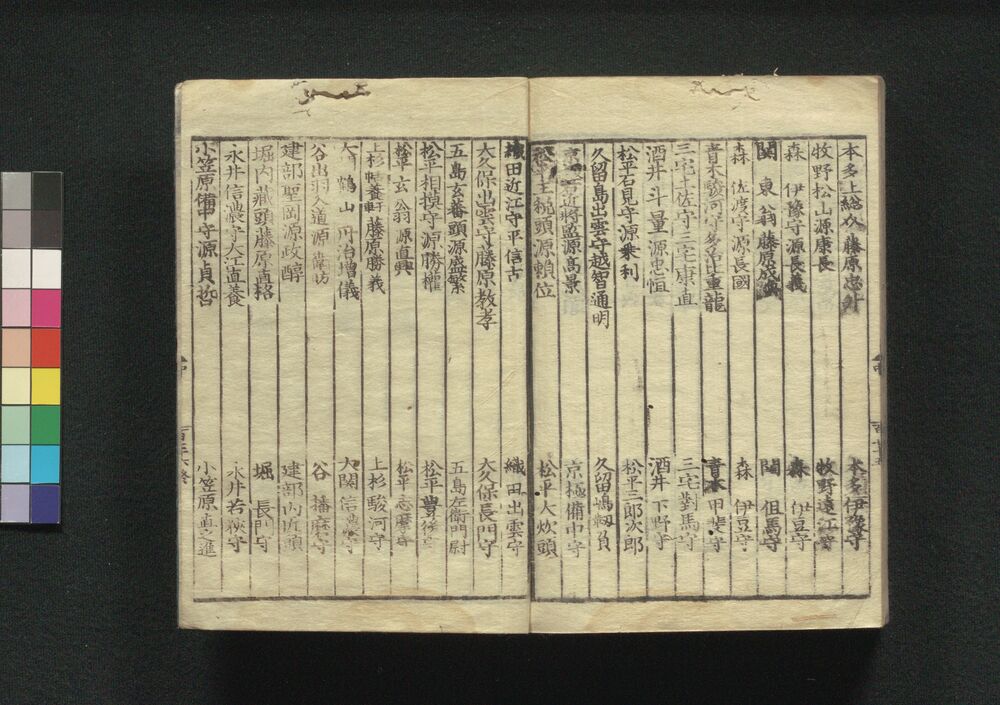 本多上総介藤原忠升　本多伊豫守
牧野松山源康長　牧野遠江守
森　伊豫守源長義　森　伊豆守
関　東翁藤原成　関　但馬守
森　佐渡守源長國　森　伊豆守
青木駿河守多治比重龍　青木甲斐守
三宅土佐守三宅康直　三宅對馬守
酒井斗量源忠恒　酒井下野守
松平石見守源乗利　松平三郎次郎
久留島出雲守越智通明　久留嶋靱負
京極近将監源高景　京極備中守
松平主税頭源頼位　松平大炊頭
織田近江守平信古　織田出雲守
大久保出雲守藤原教孝　大久保長門守
五島玄蕃頭源盛繁　五島左衛門尉
松平相摸守源勝權　松平豊後守
松平玄翁源直興　松平志摩守
上杉精養軒藤原勝義　上杉駿河守
大関鶴山丹治増儀　大関信濃守
谷出羽入道源　谷　播磨守
建部聖岡源政醇　建部内匠頭
堀内蔵頭藤原直格　堀　長門守
永井信濃守大江直養　永井若狭守
小笠原備中守源貞哲　小笠原真之進